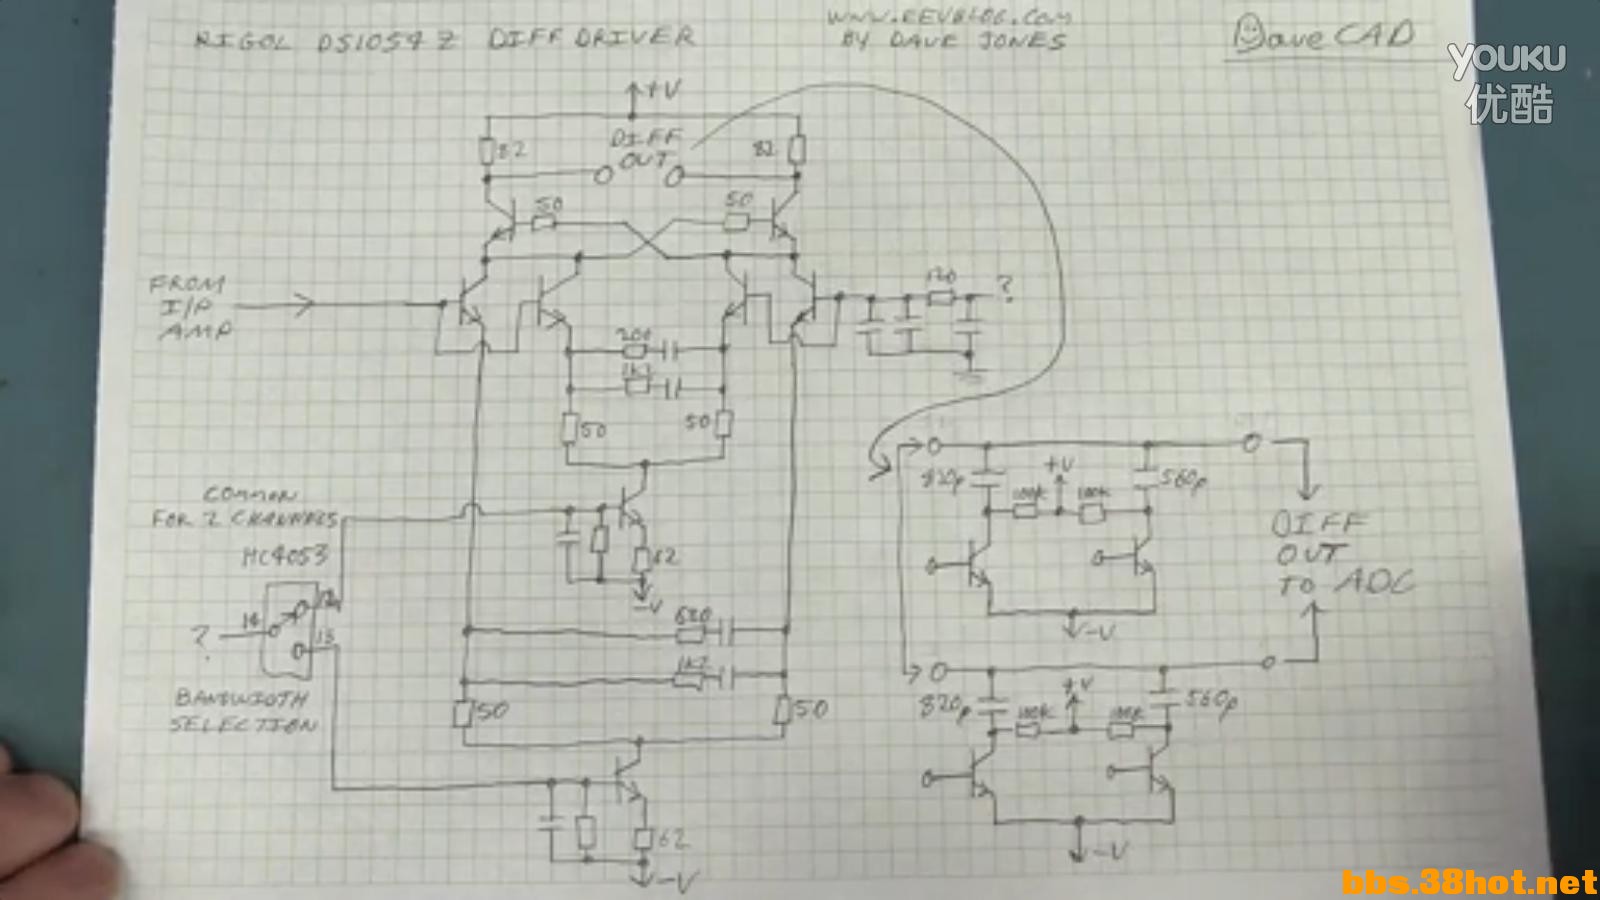 RIGOL DS1054Z DIFF DRIVER
WWW.EEVBLOG.COM
BY DAVE JONES
DaveCAD
YOUKU
优酷
+V
82
DIFF
OUT
82
50
50
FROM
I/P
AMP
120
?
200
1K1
50
50
COMMON
FOR 2 CHANNELS
HC4053
62
-V
14
12
13
?
BANDWIDTH
SELECTION
680
1K2
50
50
62
-V
820p
+V
560p
100K
100K
-V
DIFF
OUT
TO ADC
820p
+V
560p
100K
100K
-V
bbs.38hot.net